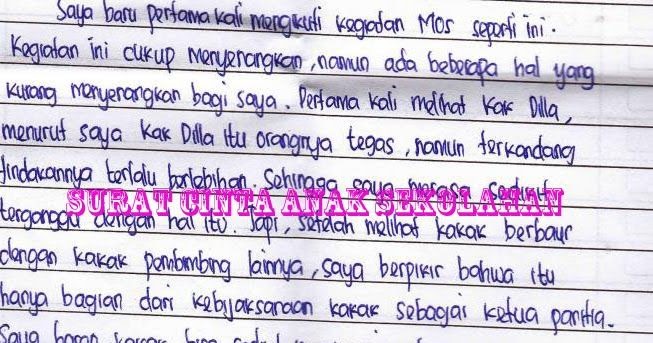 Saya baru pertama kali mengikuti kegiatan MOS seperti ini.
Kegiatan ini cukup menyenangkan, namun ada beberapa hal yang
kurang menyenangkan bagi saya. Pertama kali melihat Kak Dilla,
menurut saya Kak Dilla itu orangnya tegas, namun terkandang
tindakannya terlalu berlebihan. Sehingga saya merasa sedikit
SURAT CINTA ANAK SEKOLAHAN
terganggu dengan hal itu. Tapi, setelah melihat kakak berbaur
dengan kakak pembimbing lainnya, saya berpikir bahwa itu
hanya bagian dari kebijaksanaan kakak sebagai ketua panitia.
Saya